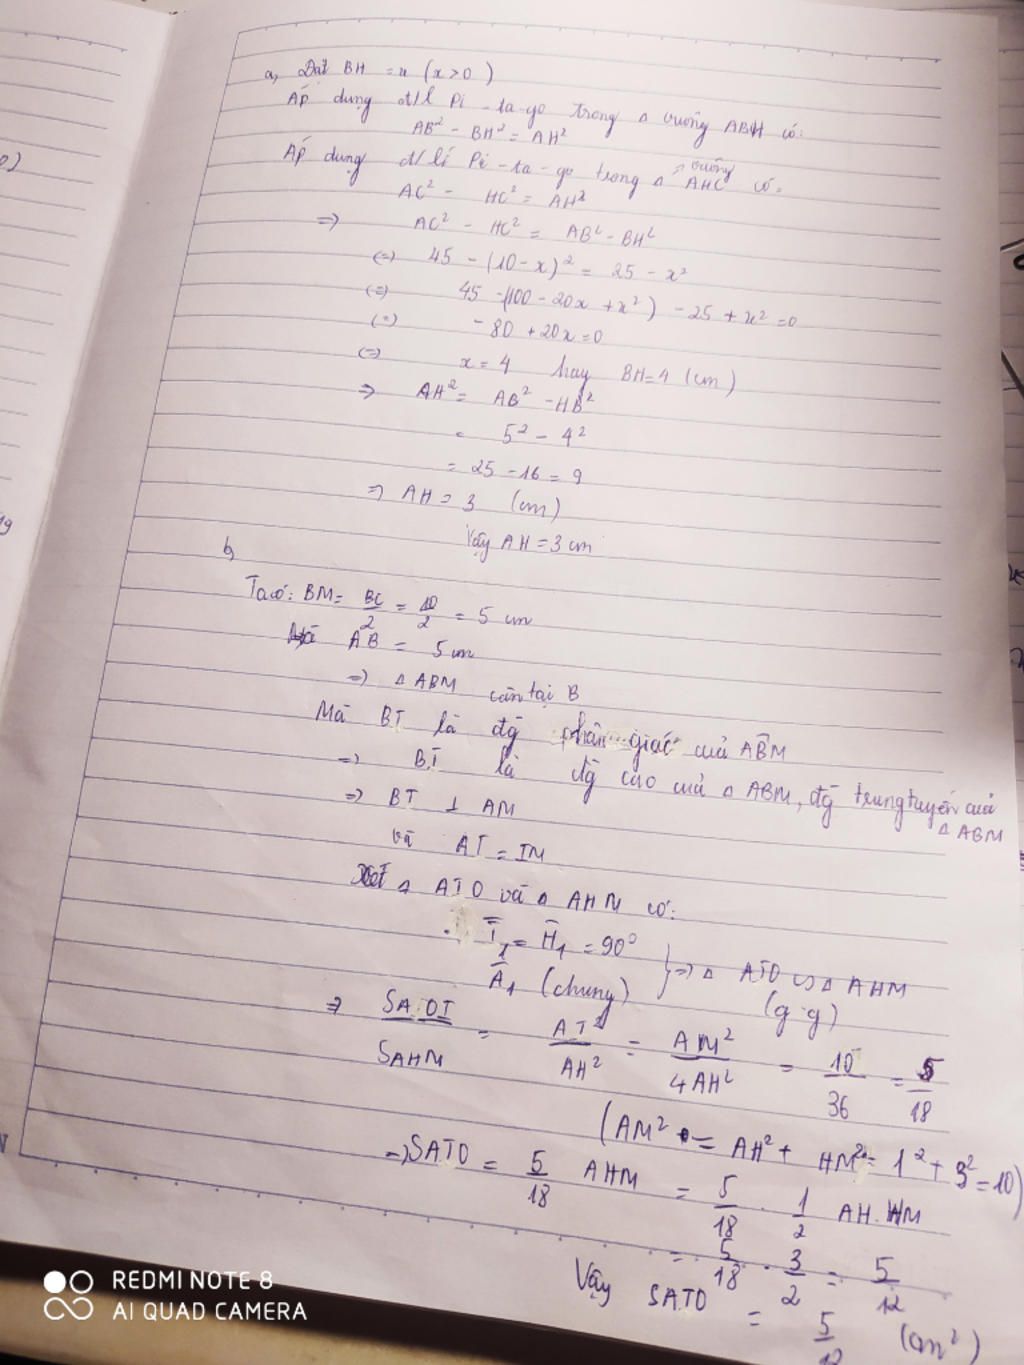 a, Đặt BH = x (x>0)
Áp dụng đ/l Pi-ta-go trong Δ vuông ABH có:
AB² - BH² = AH²
Áp dụng đ/lí Pi-ta-go trong Δ vuông AHC có:
AC² - HC² = AH²
=> AC² - HC² = AB² - BH²
(=) 45 - (10-x)² = 25 - x²
(=) 45 - (100 - 20x + x²) - 25 + x² = 0
(=) -80 + 20x = 0
(=) x = 4 hay BH = 4 (cm)
=> AH² = AB² - HB²
= 5² - 4²
= 25 - 16 = 9
=> AH = 3 (cm)
Vậy AH = 3 cm
b,
Ta có: BM = BC/2 = 10/2 = 5 cm
Mà AB = 5 cm
=> Δ ABM cân tại B
Mà BI là đg phân giác của ABM
=> BI là đg cao của Δ ABM, đg trung tuyến của Δ ABM
=> BI ⊥ AM
và AI = IM
Xét Δ AIO và Δ AHM có:
I₁ = H₁ = 90°
A₁ (chung)
} => Δ AIO ∽ Δ AHM
(g.g)
=> SAOI/SAHM = AI²/AH² = AM²/4AH² = 10/36 = 5/18
(AM² = AH² + HM² = 1² + 3² = 10)
=> SAIO = 5/18 AHM = 5/18 . 1/2 AH.HM
= 5/18 . 3/2 = 5/12
Vậy SAIO = 5/12 (cm²)
REDMI NOTE 8
AI QUAD CAMERA